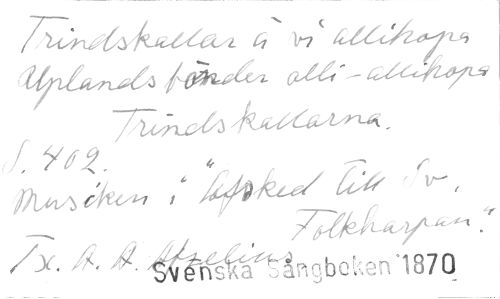 Trindskallar ä vi allihopa
Uplandsbönder alli-allihopa
Trindskallarna.
S. 402.
Musiken i "Afsked till Sv.
Folkharpan".
Tx. A. A. Afzelius
Svenska Sångboken 1870